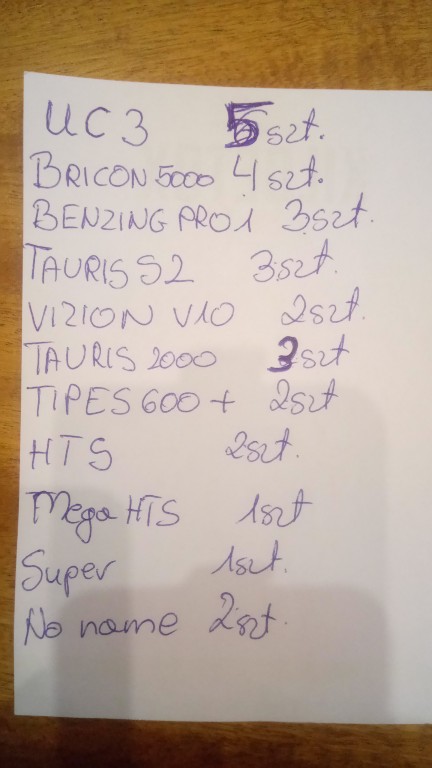 UC3 5szt.
BRICON 5000 4szt.
BENZING PRO1 3szt.
TAURIS S2 3szt.
VIZION V10 2szt.
TAURIS 2000 3szt
TIPES 600+ 2szt
HTS 2szt.
Mega HTS 1szt
Super 1szt.
No name 2szt.